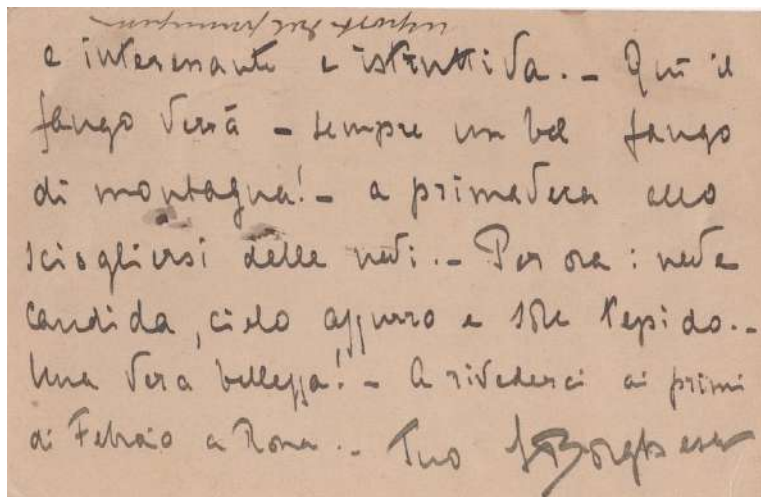 e interessante e istruttiva. - Qui il
fango verrà - sempre un bel fango
di montagna! - a primavera allo
sciogliersi delle nevi. - Per ora: neve
candida, cielo azzurro e sole tepido. -
Una vera bellezza! - A rivederci ai primi
di Febraio a Roma. - Tuo